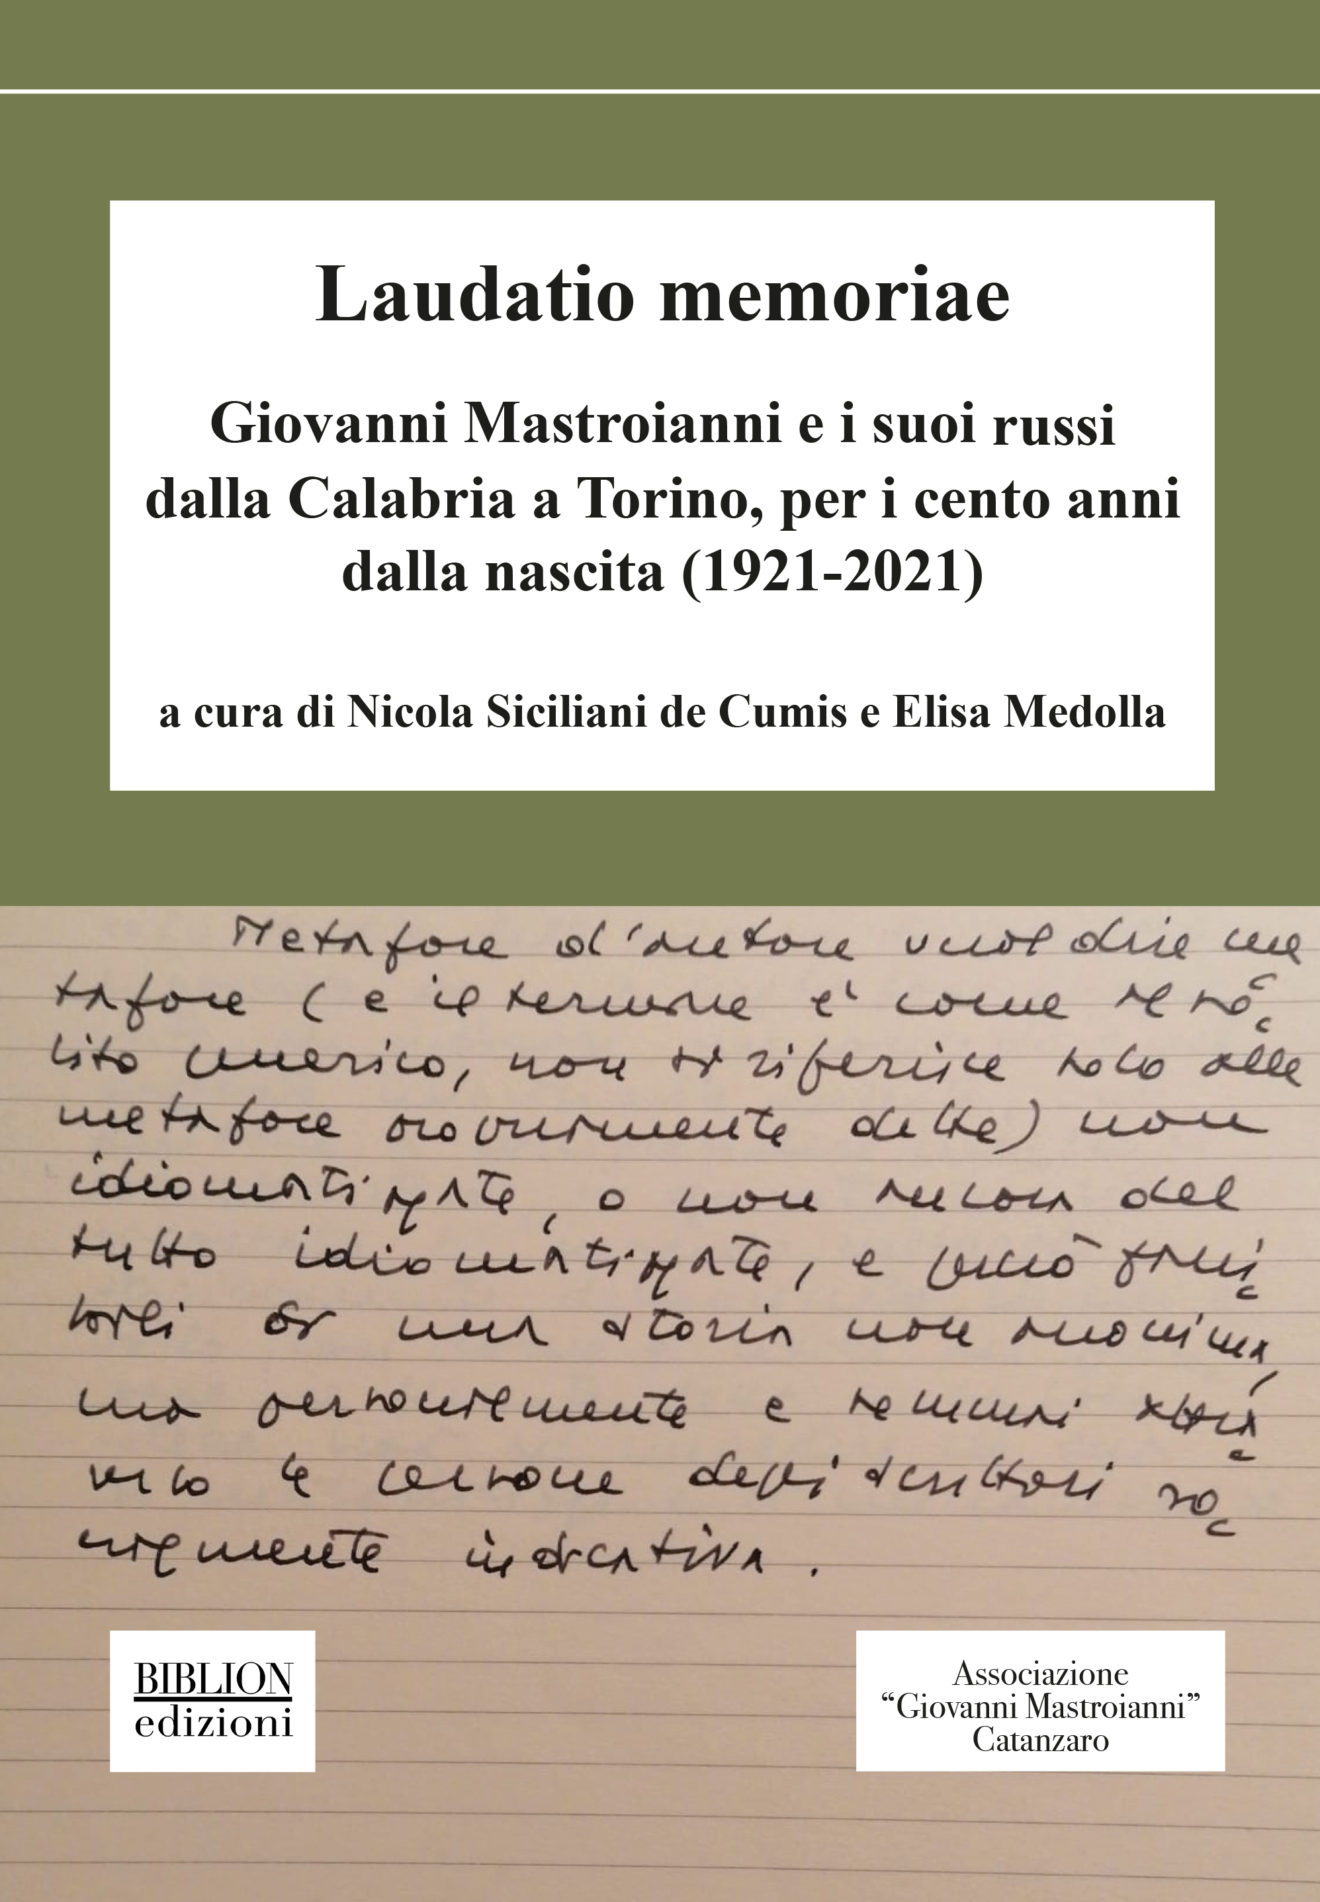 Laudatio memoriae
Giovanni Mastroianni e i suoi russi
dalla Calabria a Torino, per i cento anni
dalla nascita (1921-2021)
a cura di Nicola Siciliani de Cumis e Elisa Medolla
Metafore d'autore vuol dire me
tafore (e il termine è come al so
lito generico, non si riferisce solo alle
metafore propriamente dette) non
idiomatizzate, o non ancora del
tutto idiomatizzate, e perciò
di una storia non anonima,
ma personalmente e
le persone degli scrittori
indicativa.
BIBLION
edizioni
Associazione
“Giovanni Mastroianni”
Catanzaro